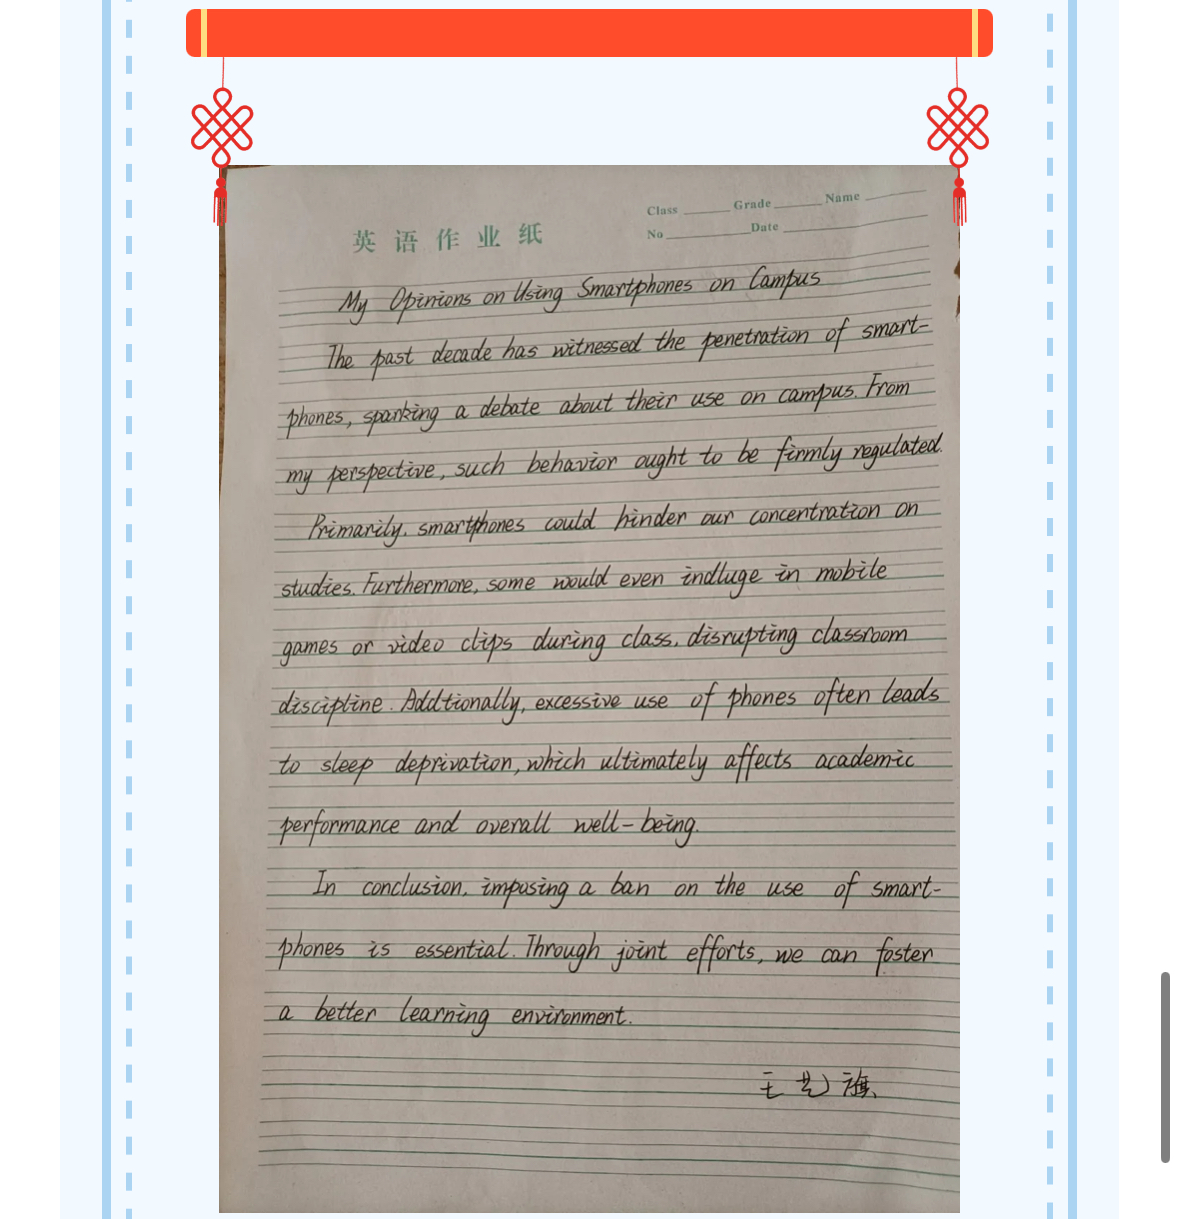 Class Grade Name
No Date
英语作业纸
My Opinions on Using Smartphones on Campus
The past decade has witnessed the penetration of smart-
phones, sparking a debate about their use on campus. From
my perspective, such behavior ought to be firmly regulated.
Primarily, smartphones could hinder our concentration on
studies. Furthermore, some would even indluge in mobile
games or video clips during class, disrupting classroom
discipline. Addtionally, excessive use of phones often leads
to sleep deprivation, which ultimately affects academic
performance and overall well-being.
In conclusion, imposing a ban on the use of smart-
phones is essential. Through joint efforts, we can foster
a better learning environment.
王艺